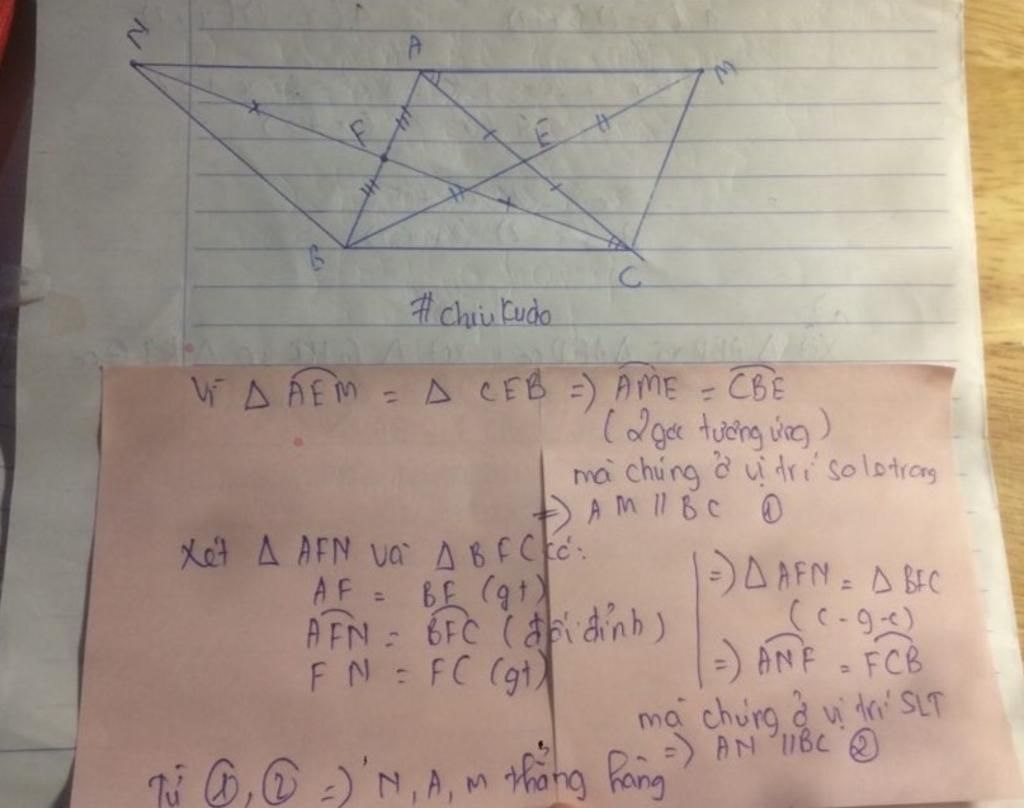 N
A
M
F
E
B
C
#chiukudo
Vì Δ AEM = Δ CEB => AME = CBE
(2 góc tương ứng)
mà chúng ở vị trí so le trong
=> AM // BC ①
Xét Δ AFN và Δ BFC có:
AF = BF (gt)
AFN = BFC (đối đỉnh)
FN = FC (gt)
=> Δ AFN = Δ BFC
(c-g-c)
=> ANF = FCB
mà chúng ở vị trí SLT
=> AN // BC ②
Từ ①, ② => N, A, M thẳng hàng